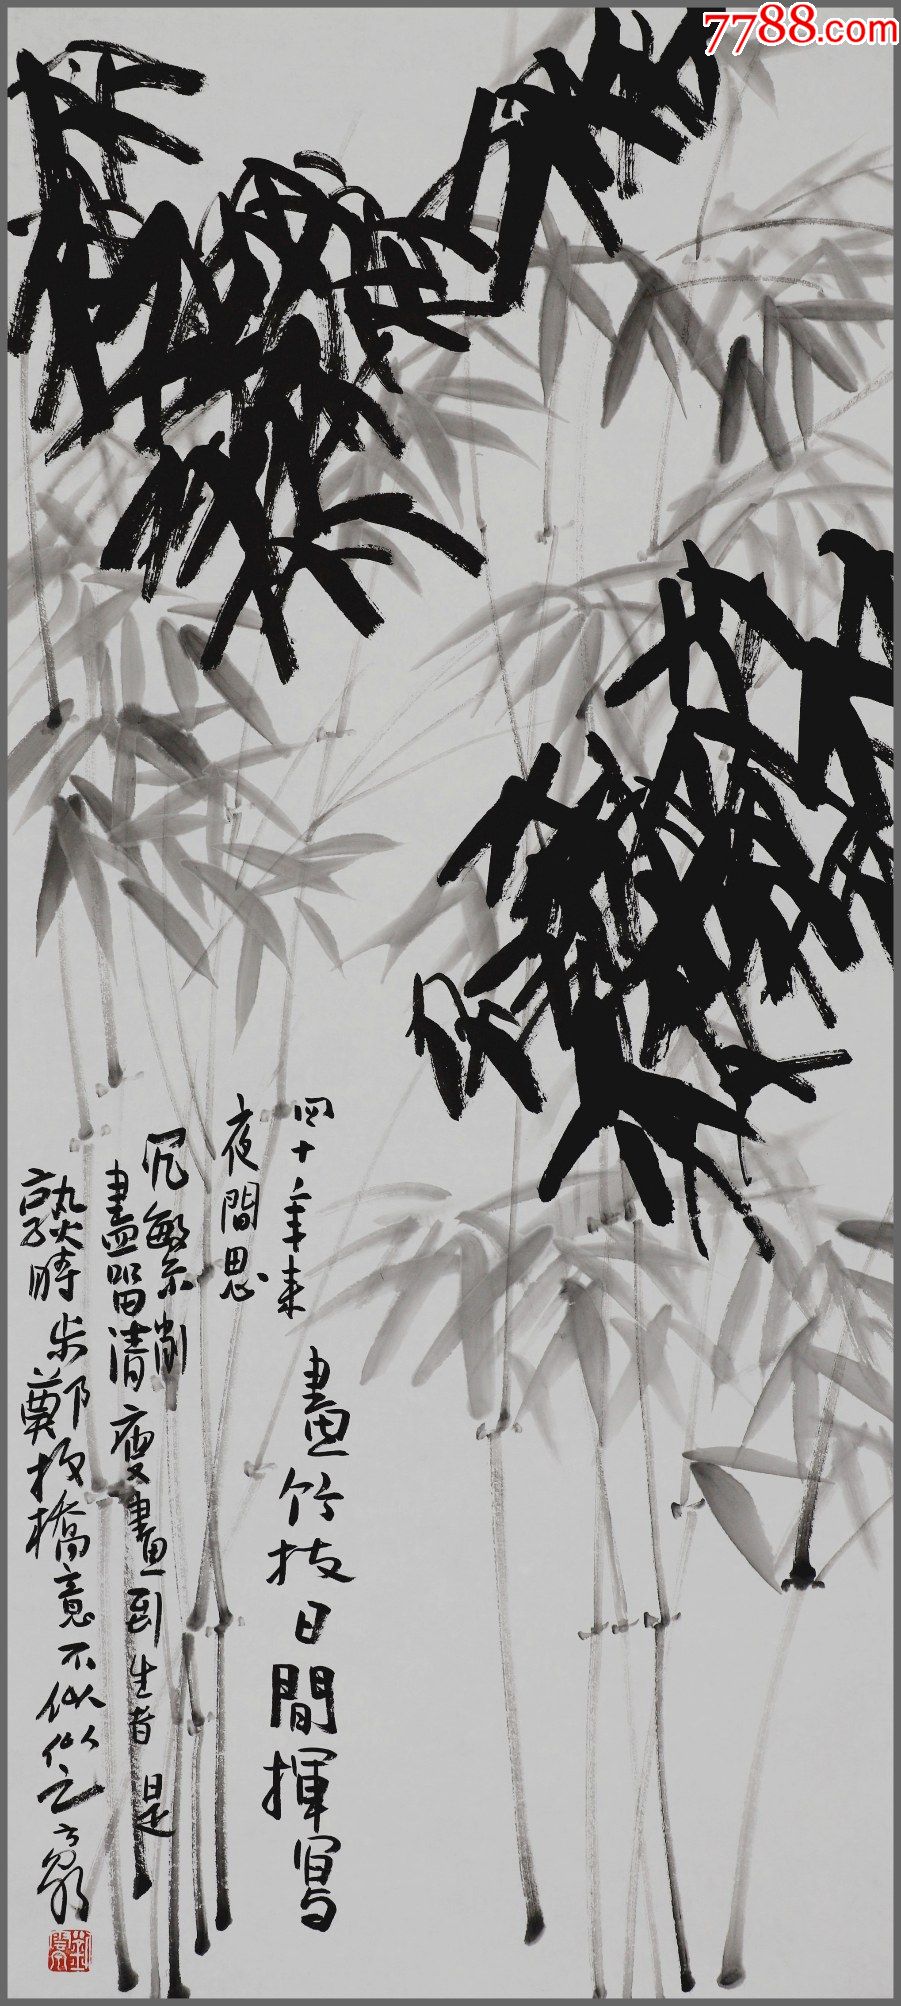 四十年来畫竹枝日間揮寫
夜間思
冗繁削
盡留清瘦畫到生者是
熟時步鄭板橋意不似似之
7788.com